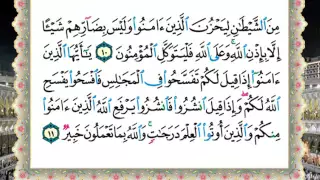 مِنَ ٱلشَّيْطَٰنِ لِيَحْزُنَ ٱلَّذِينَ ءَامَنُوا۟ وَلَيْسَ بِضَآرِّهِمْ شَيْـًٔا
إِلَّا بِإِذْنِ ٱللَّهِ ۚ وَعَلَى ٱللَّهِ فَلْيَتَوَكَّلِ ٱلْمُؤْمِنُونَ ١٠ يَٰٓأَيُّهَا ٱلَّذِينَ
ءَامَنُوٓا۟ إِذَا قِيلَ لَكُمْ تَفَسَّحُوا۟ فِى ٱلْمَجَٰلِسِ فَٱفْسَحُوا۟ يَفْسَحِ
ٱللَّهُ لَكُمْ ۖ وَإِذَا قِيلَ ٱنشُزُوا۟ فَٱنشُزُوا۟ يَرْفَعِ ٱللَّهُ ٱلَّذِينَ ءَامَنُوا۟
مِنكُمْ وَٱلَّذِينَ أُوتُوا۟ ٱلْعِلْمَ دَرَجَٰتٍ ۚ وَٱللَّهُ بِمَا تَعْمَلُونَ خَبِيرٌ ١١